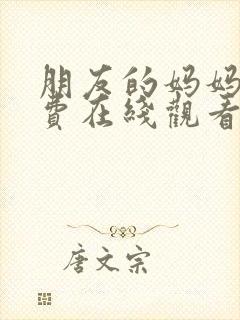 朋友的妈妈
费在线觀看
唐文宗